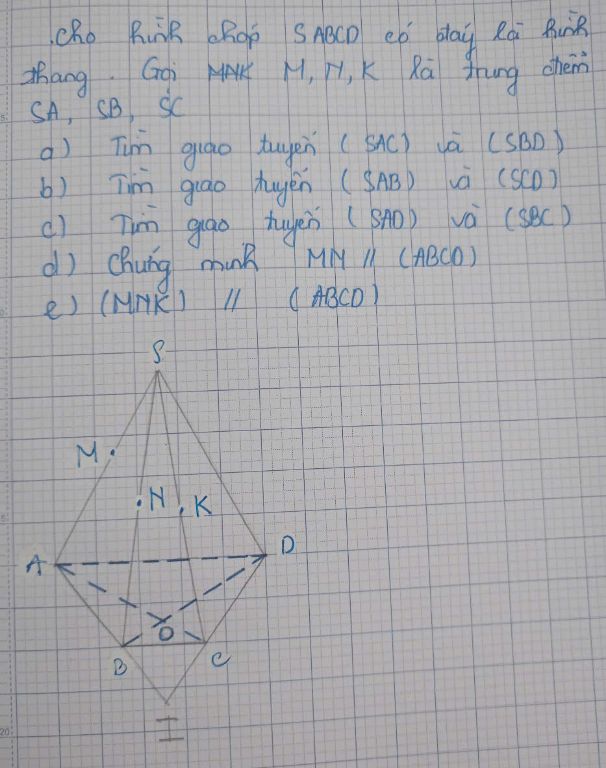 .Cho hình chóp SABCD có đáy là hình
thang. Gọi MNK M, N, K là trung điểm
SA, SB, SC
a) Tìm giao tuyến (SAC) và (SBD)
b) Tìm giao tuyến (SAB) và (SCD)
c) Tìm giao tuyến (SAD) và (SBC)
d) Chứng minh MN // (ABCD)
e) (MNK) // (ABCD)
S
M
N K
A
D
O
B
C
I
20